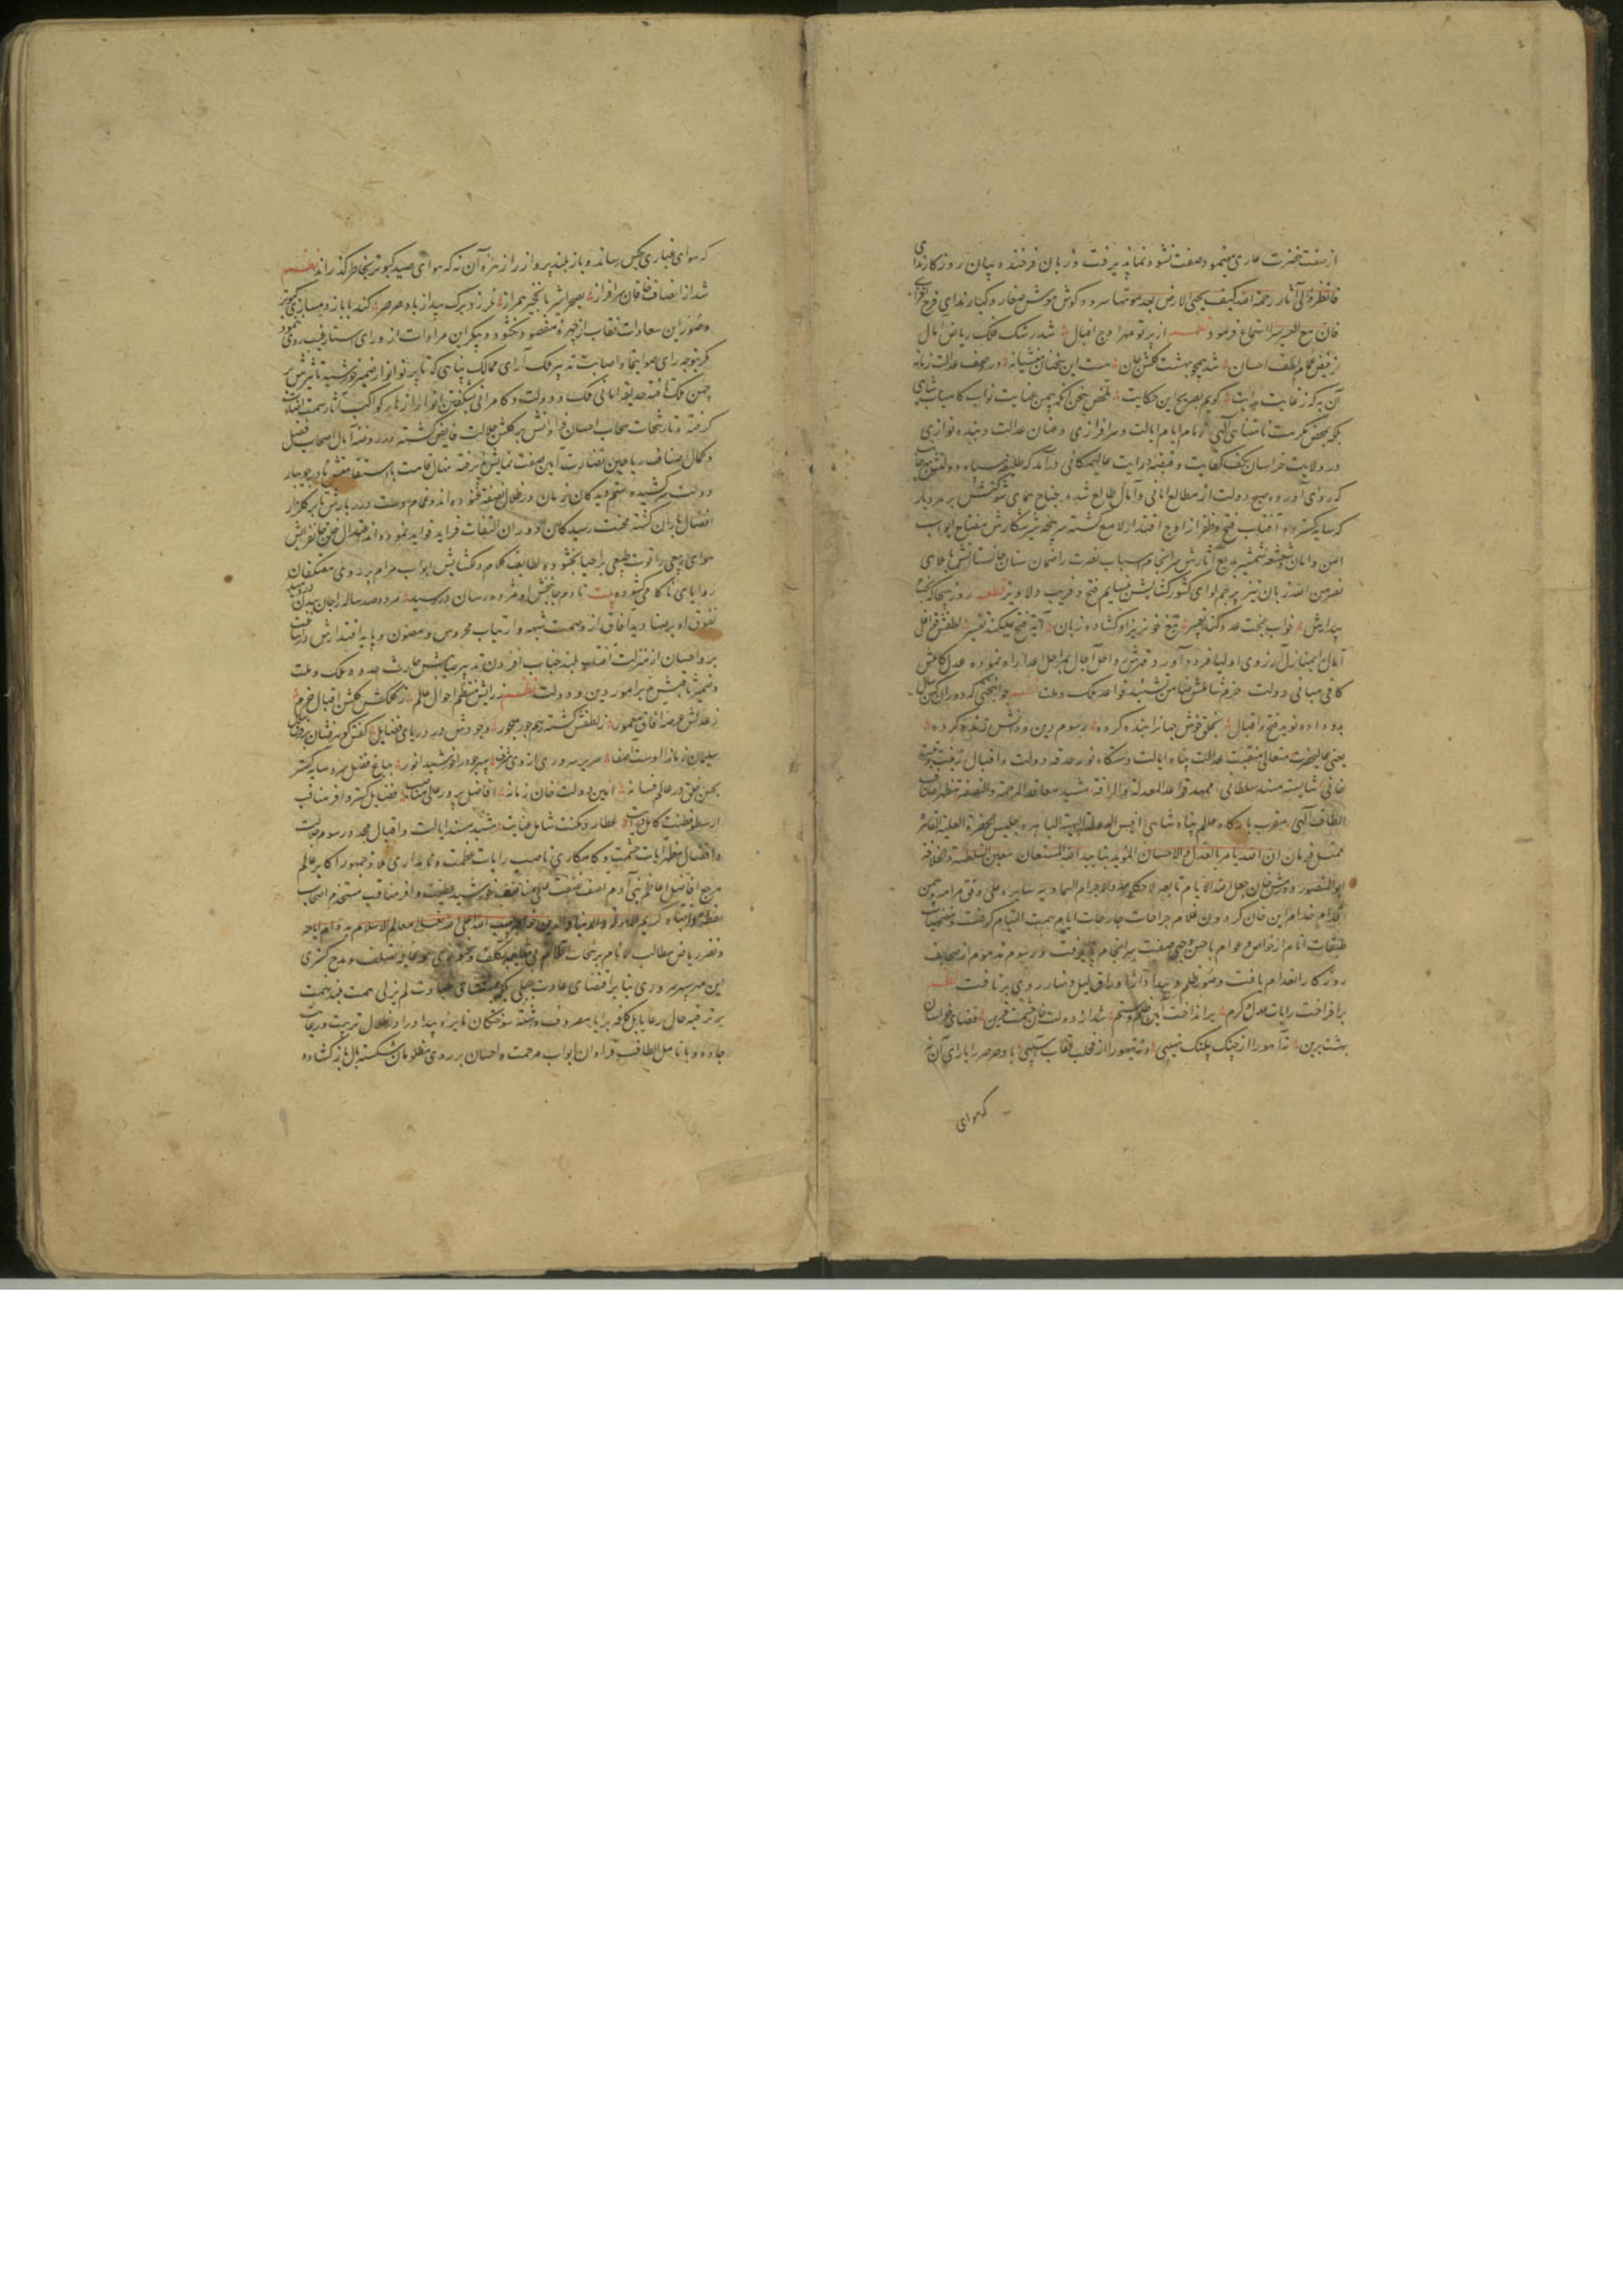 از صفت خضرت عاری مینمود صفت نشو و نما پذیرفت و زبان فرخنده بیان روزگار ندای
فانظر الی آثار رحمة الله کیف یحیی الارض بعد موتها سرود و گوش هوش صغار و کبار ندای فرح افزای
فان مع العسر یسرا استماع فرمود نظم از پرتو مهر اوج اقبال شد رشک فلک ریاض آمال
از فیض غمام لطف احسان شد همچو بهشت گلشن جان هست این سخنان منشیانه در وصف عدالت زمانه
آن به که ز غایت درایت گویم بصریح این حکایت ملخص سخن آنکه بیمن عنایت نواب کامیاب شاهی
بلکه بمحض مکرمت نامتناهی الهی زمام ایام ایالت و سرافرازی و عنان عدالت و بنده نوازی
در ولایت خراسان بکف کفایت و قبضه درایت عالیمکانی درآمد که
که روی آورده صبح دولت از مطالع امانی و آمال طالع شده جناح همای شوکتش بر هر دیار
که سایه گسترده آفتاب فتح و ظفر از اوج اقتدار لامع گشته سرپنجه شیر شکارش مفتاح ابواب
امن و امان و شعشعه شمشیر بدیع آثارش سرانجام اسباب نصرت را ضمان سنان جانستانش بآیه
نصر من الله زبان تیز پرچم لوای کشورگشایش نسیم فتح و فریب دلاویز قطعه روز هیجا که
بیدارش خواب بخت عدو کند تعبیر تیغ خونریز او گشاده زبان آیه فتح میکند تفسیر لطفش قوافل
آمال را بمنازل آرزوی اولیا فرود آورد و قهرش رواحل آجال بمراحل اعدا راه نموده عدل کاملش
کافی مبانی دولت حزم شاملش ضامن تشیید قواعد ملک و ملت نظم جوانبختی که دوران کهن سال
بدو داده نوید فتح و اقبال بخلق خوش جهانرا بنده کرده رسوم دین و دانش زنده کرده
یعنی عالیحضرت متعالی منقبت عدالت پناه ایالت دستگاه نور حدقه دولت و اقبال
خانی شایسته مسند سلطانی ممهد قواعد المعدلة والرافة مشید معاقد المرحمة والنصفة مظهر اصناف
الطاف الهی مقرب بارگاه عالم پناه شاهی انیس الحضرة البهیة الباهره جلیس الحضرة العلیة القاهره
ممتثل فرمان ان الله یأمر بالعدل والاحسان الموید بتایید الله المستعان معین السلطنة والخلافة
ابوالمنصور دورمش خان جعل الله الایام تابعه لاحکامه والاجرام السماویه سایره علی وفق مرامه و بیمن
اقدام خدام این خان گردون غلام جراحات جارحات ایام سمت التیام گرفت و مقتضیات
طبقات انام از خواص و عوام باحسن وجهی صفت سرانجام پذیرفت و رسوم مذموم از صحایف
روزگار انعدام یافت و صور ظلم و بیداد از اوراق لیل و نهار روی برتافت نظم
برافراخت رایات عدل و کرم برانداخت آیین ظلم و ستم شد از دولت خان حشمت قرین فضای خراسان
بهشت برین نه آهو را از چنگ پلنگ نهیبی و نه تیهو را از مخلب عقاب آسیبی باد صرصر را یارای آن نه
که هوای
که هوای غباری بکس رساند و باز بلند پرواز را زهره آن نه که هوای صید کبوتر بخاطر گذراند نظم
شد از انصاف خاقان سرافراز بصحرا شیر با نخجیر همراز نلرزد برگ بید از باد صرصر کند با باز دمسازی کبوتر
و صور این سعادات نقاب از چهره مقصود نگشود و پیکر این مرادات از ورای استار غیب روی ننمود
مگر بتوجه رای صوابنما و اصابت تدبیر ملک آرای ممالک پناهی که تا پرتو انوار ضمیر خورشید تاثیرش بر
چمن ملک تافته حدیقه امانی ملک و دولت و کامرانی بشگفتن انوار ازهار کواکب آثار سمت
گرفته و تا رشحات سحاب احسان فراوانش بر گلشن جلالت فایض گشته در روضه آمال اصحاب فضل
و کمال اصناف ریاحین نضارت آیین صفت نمایش پذیرفته نهال قامت باستقامتش تا در جویبار
دولت سرکشیده ستم دیدگان زمان در ظلال نصفتش غنوده اند و غمام دست درربارش تا بر گلزار
افضال باران گشته محنت رسیدگان دوران التقاط فراید فواید نموده اند
هوای ربیعی را قوت طبیعی براحیا بخشود و لطایف کلام دلگشایش ابواب مرام بر روی معتکفان
زوایای ناکامی گشوده بیت تا دم جانبخش او مژده رسان در رسید مرده صد ساله را جان ببدن
تفوق او بر صنادید آفاق از وصمت شبهه و ارتیاب محروس و مصون و پایه اقتدارش در
بر و احسان از منزلت آفتاب بلند جناب افزون تدبیر صایبش حارث حدود ملک و ملت
و ضمیر ثاقبش مدبر امور دین و دولت نظم ز رایش منتظم احوال عالم ز کلکش گلشن اقبال خرم
ز عدلش عرصه آفاق معمور ز لطفش گشته رسم جور مهجور وجودش در دریای فضایل کفش گوهر فشان
سلیمان زمانرا اوست آصف سریر سروری از وی مشرف سپهر جود را خورشید انور بباغ فضل سرو سایه گستر
بحسن خلق در عالم فسانه امین دولت خان زمانه افاضل پرور عالی مناصب فضایل گستر وافر مناقب
ارسطو فطنت کامل عطارد مکنت شامل عنایت مشید مسند ایالت و اقبال مجدد رسوم جلالت
و افضال مظهر آیات حشمت و کامکاری ناصب رایات عظمت و نامداری ملاذ جمهور اکابر عالم
مرجع افاضل اعاظم بنی آدم آصف صفت خورشید طلیعت وافر مناقب مستخدم اصحاب
کریم الدوله والدنیا والدین خواجه حبیب الله اعلی الله تعالی معالم الاسلام بدوام ایامه
و نضر ریاض مطالب الانام برشحات اقلامه بی شایبه تکلف و سخنوری و بی غایله تصلف و مدح گستری
این مهر سپهر سروری بنا بر اقتضای عادت جبلی لم یزلی همت بلند نهمت
بر ترفیه حال رعایا بل کافه برایا مصروف داشته سوختگان نایره بیداد را در ظلال تربیت و رعایت
جا داده و بانامل الطاف فراوان ابواب مرحمت و احسان بر روی مظلومان شکسته بال باز گشاده